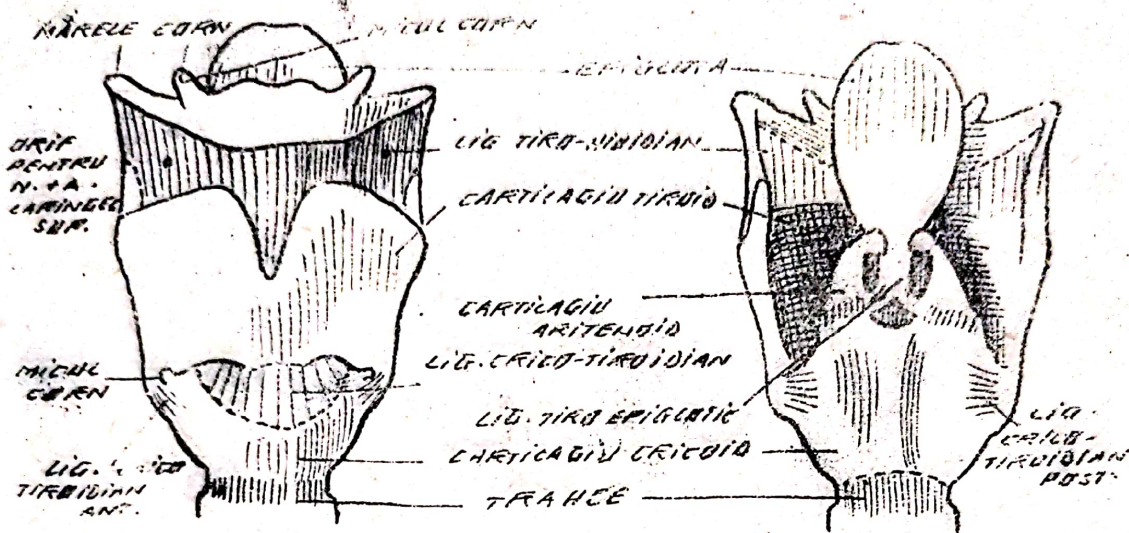 MARELE CORN
MICUL CORN
EPIGLOTA
ORIF
PENTRU
N. + A.
LARINGEU
SUP.
LIG TIRO-HIOIDIAN
CARTILAGIU TIROID
CARTILAGIU
ARITENOID
LIG. CRICO-TIROIDIAN
MICUL
CORN
LIG. TIRO EPIGLOTIC
LIG.
CRICO-
TIROIDIAN
POST.
CARTILAGIU CRICOID
LIG.
TIROIDIAN
ANT.
TRAHEE